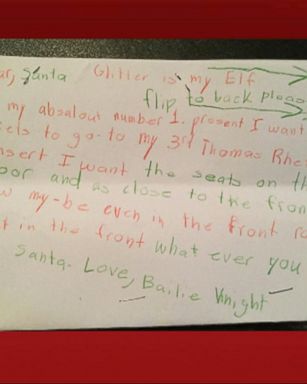 ar, santa Glitter is my Elf
flip to back pleas
my absalout number 1. present I want
ets to go-to my 3rd Thomas Rhe
nsert I want the seats on th
oor and as close to the fron
w my-be even in the front ro
t in the front what ever you
Santa. Love, Bailie Knight